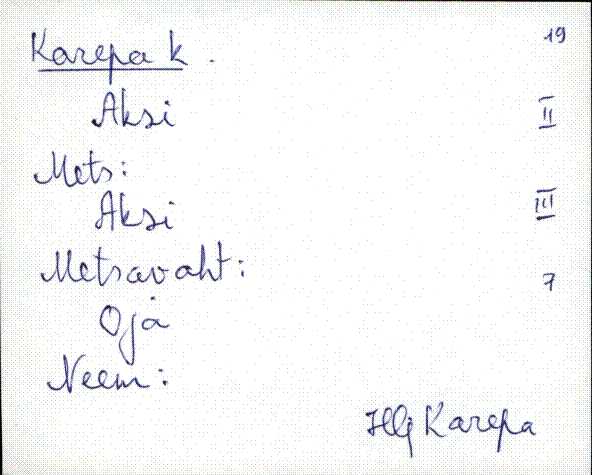 Karepa k. 19
Aksi II
Mets:
Aksi III
Metsavaht: 7
Oja
Neem:
Hlj Karepa